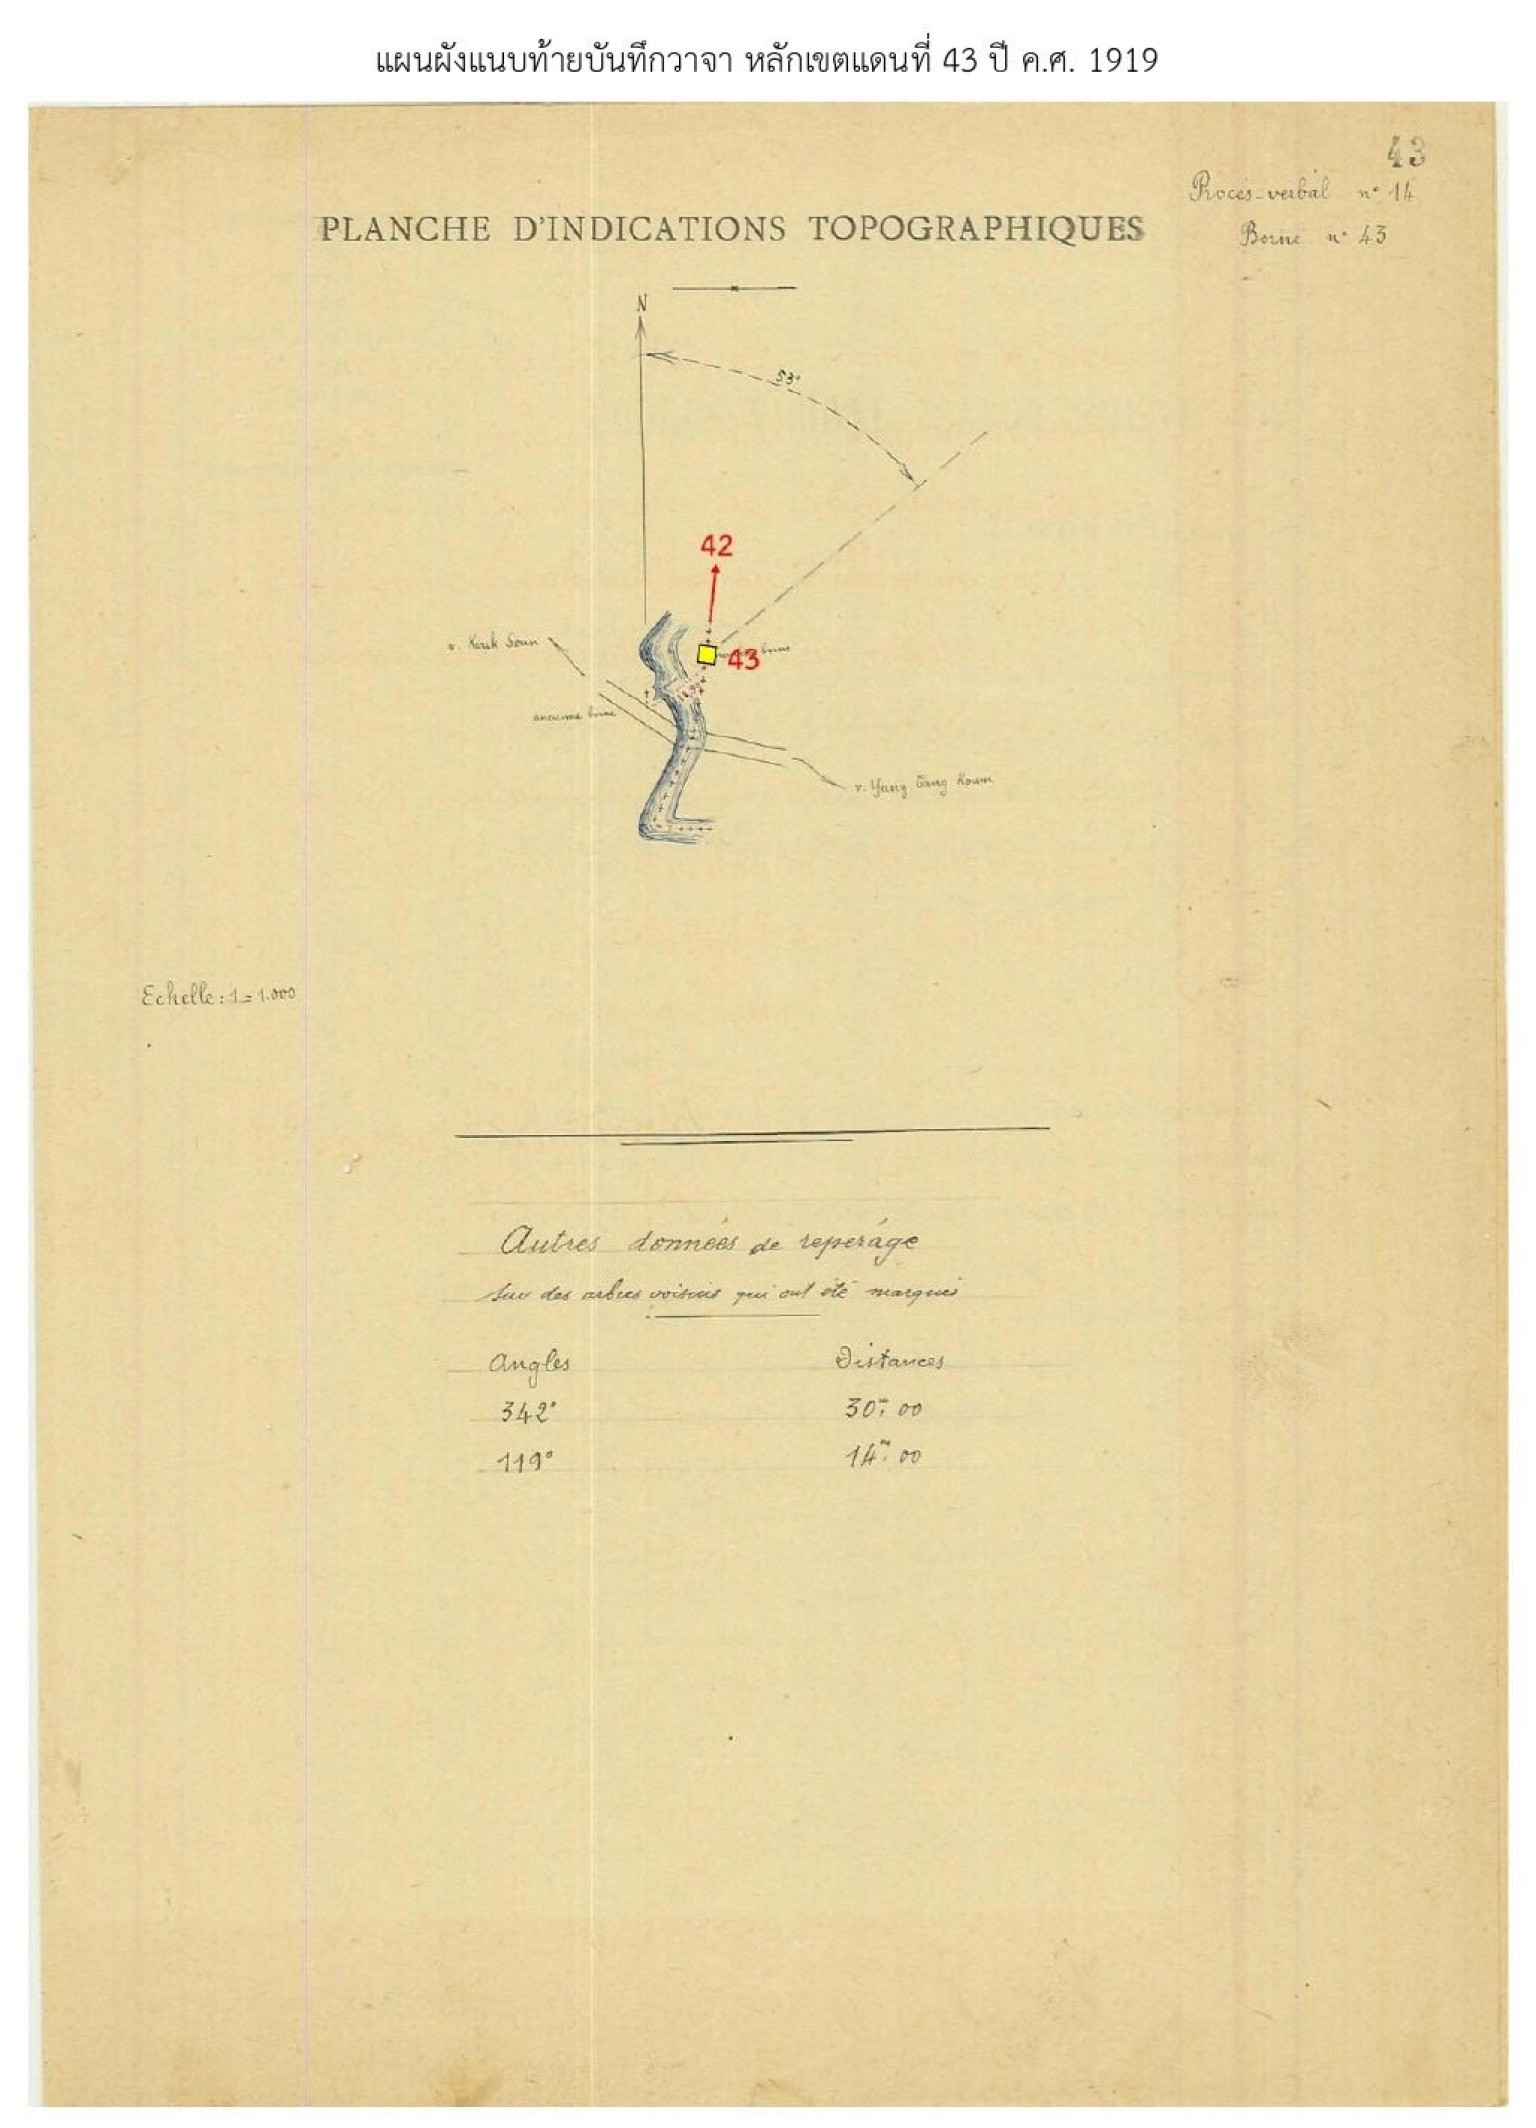 แผนผังแนบท้ายบันทึกวาจา หลักเขตแดนที่ 43 ปี ค.ศ. 1919
43
Procès-verbal n° 14
PLANCHE D'INDICATIONS TOPOGRAPHIQUES
Borne n° 43
N
53°
42
v. Kouk Soun
43
borne
ancienne borne
v. Yang Tang Koum
Echelle: 1=1.000
Autres données de repérage
sur des arbres voisins qui ont été marqués
Angles Distances
342° 30m,00
119° 14m,00